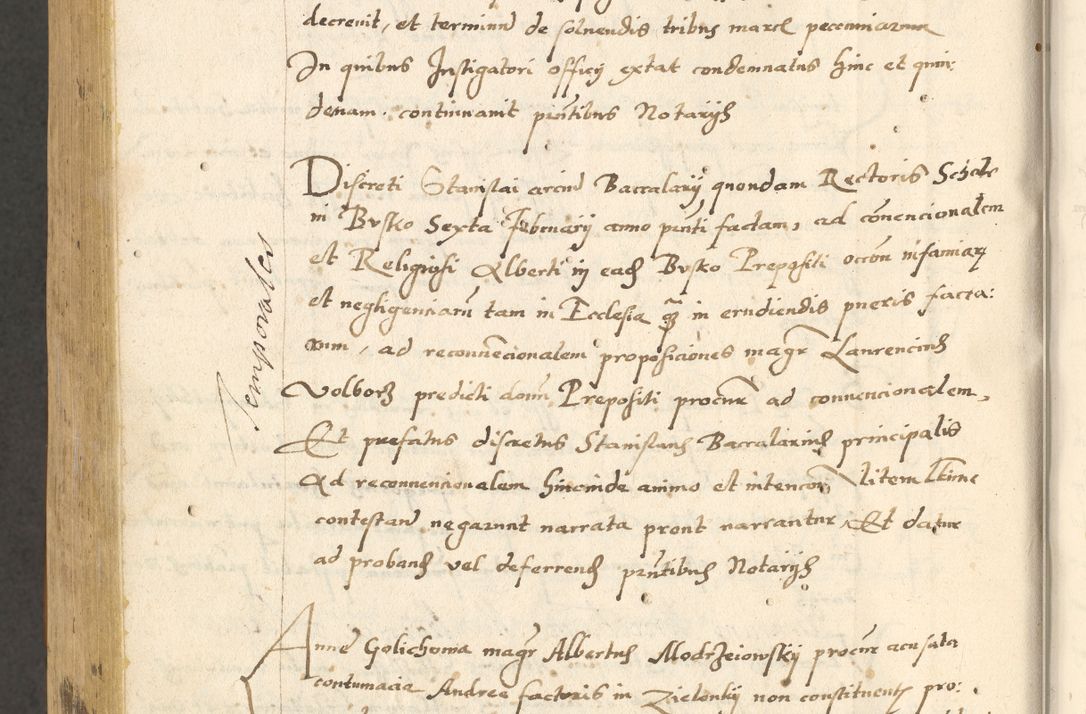 decrevit, et terminum de solvendis tribus marcis pecuniarum
In quibus Instigatori officij extat condemnatus hinc et quin:
denam continuavit pntibus Notarijs
Discreti Stanislai arcium Baccalarij quondam Rectoris Schole
in Busko Sexta Februarij anno pnti factam, ad convencionalem
et Religiosi Alberti in ead Busko Prepositi occon infamiar
et negligenciaru tam in Ecclesia qz in erudiendis pueris facta:
rum, ad reconvencionalem proposiciones magr Laurencius
Volborz predicti domini Prepositi procur ad convencionalem,
Et prefatus discretus Stanislaus Baccalarius principalis
Ad reconvencionalem hincinde animo et intencon litem
contestan negarunt narrata prout narrantur, Et datur
ad proband vel deferrend pntibus Notarijs
Temporales
Anne Golichowa magr Albertus Modrzeiowskij procur acusata
contumacia Andree factoris in Zielonkij non constituent pro: